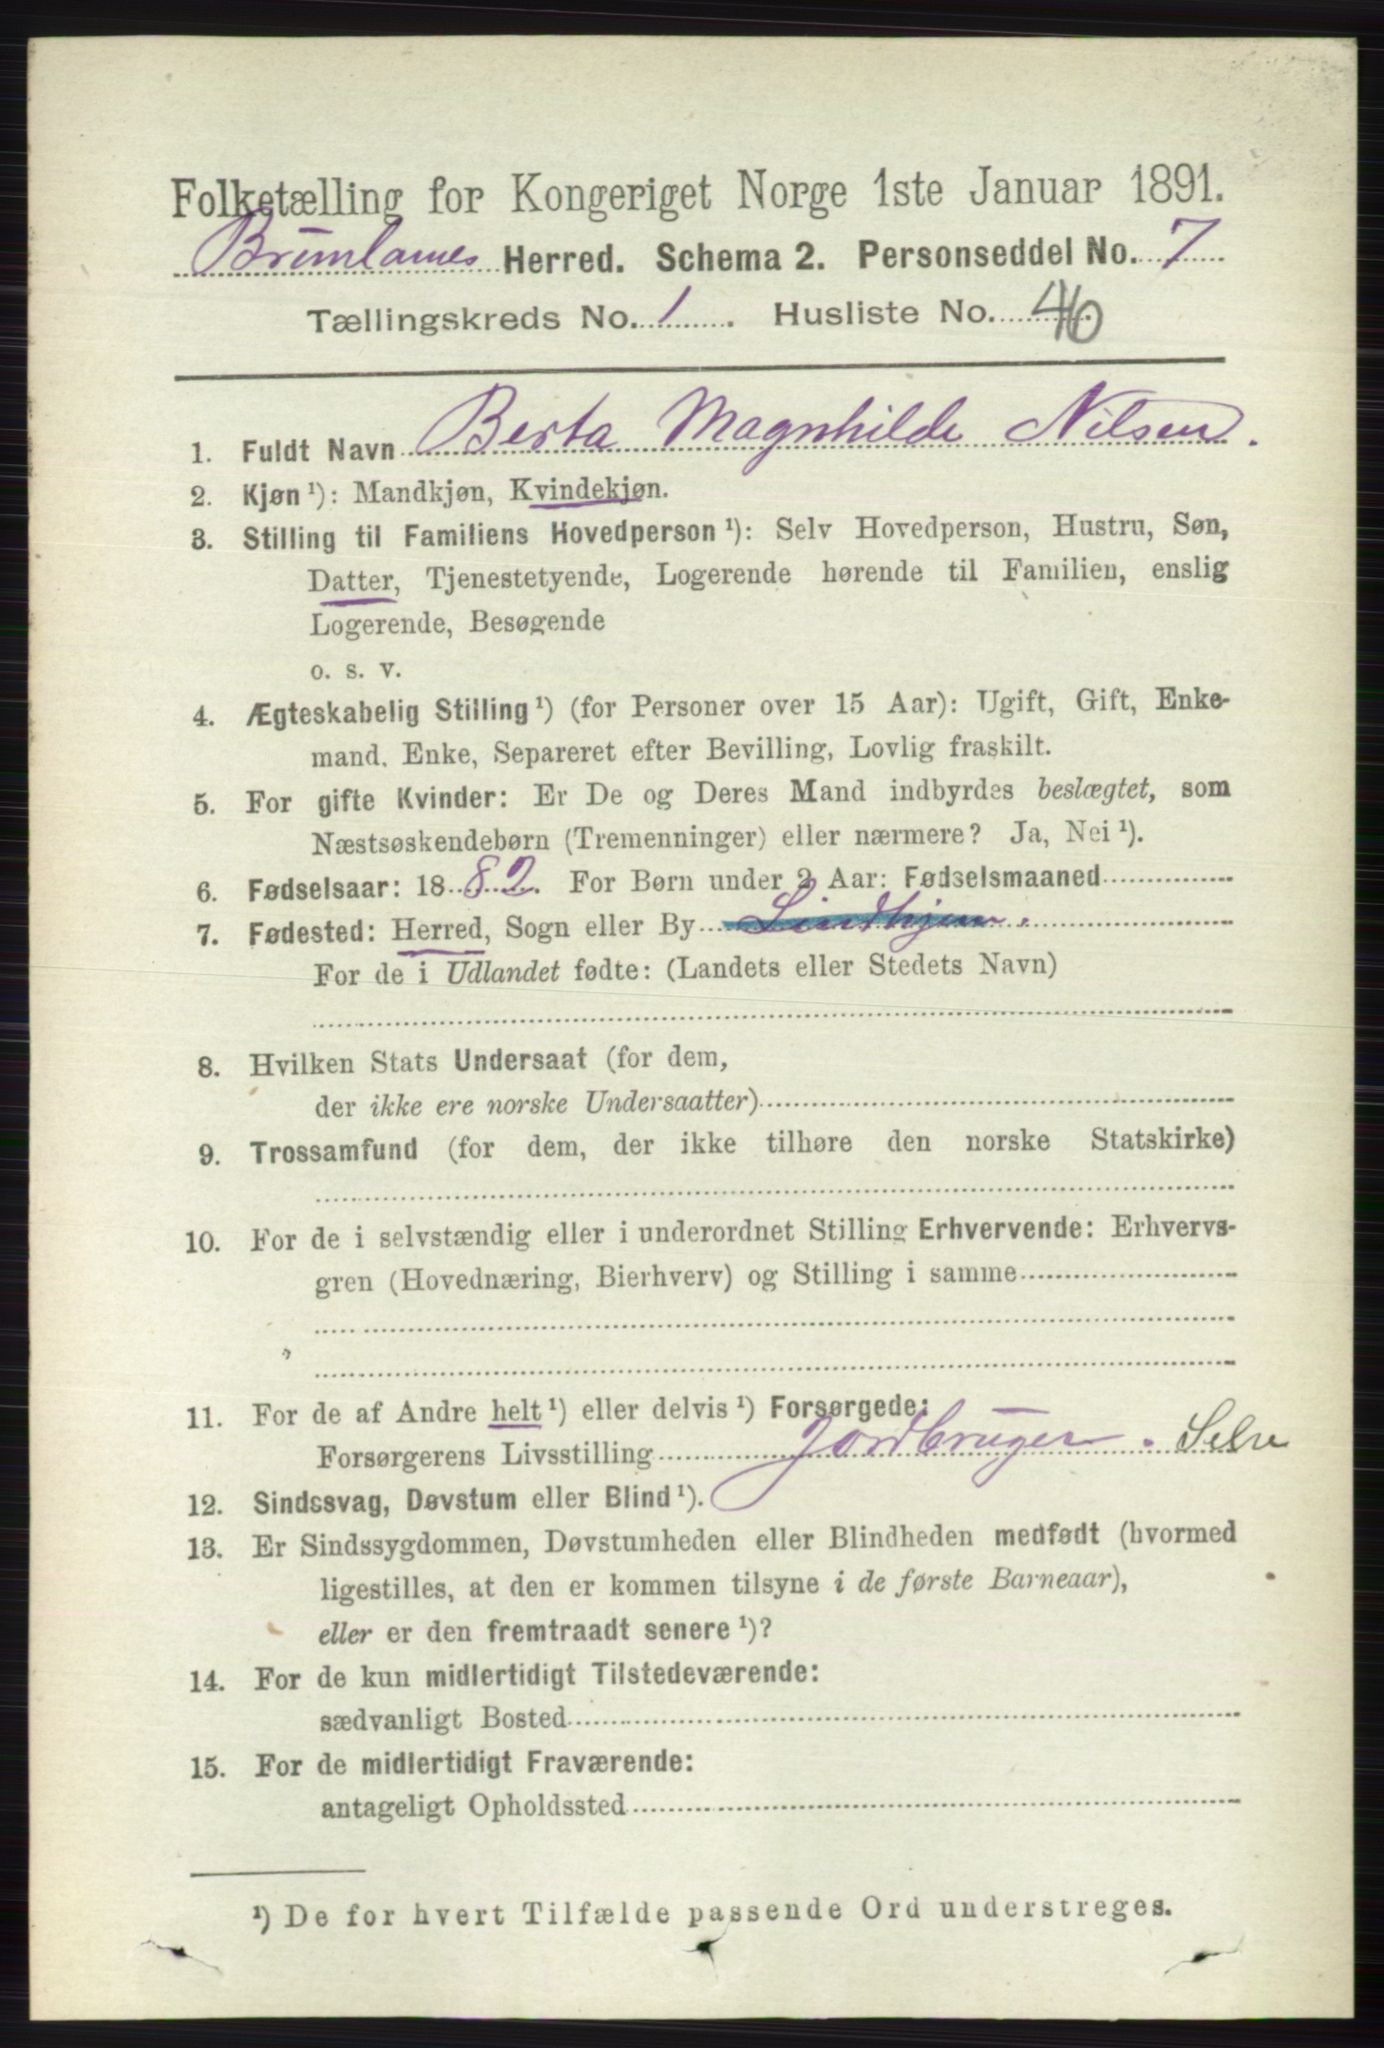 Folketælling for Kongeriget Norge 1ste Januar 1891.
Brunlanes Herred. Schema 2. Personseddel No. 7
Tællingskreds No. 1. Husliste No. 40
1. Fuldt Navn Berta Magnhilde Nilsen.
2. Kjøn ¹): Mandkjøn, Kvindekjøn.
3. Stilling til Familiens Hovedperson ¹): Selv Hovedperson, Hustru, Søn,
Datter, Tjenestetyende, Logerende hørende til Familien, enslig
Logerende, Besøgende
o. s. v.
4. Ægteskabelig Stilling ¹) (for Personer over 15 Aar): Ugift, Gift, Enke-
mand, Enke, Separeret efter Bevilling, Lovlig fraskilt.
5. For gifte Kvinder: Er De og Deres Mand indbyrdes beslægtet, som
Næstsøskendebørn (Tremenninger) eller nærmere? Ja, Nei ¹).
6. Fødselsaar: 1882. For Børn under 2 Aar: Fødselsmaaned
7. Fødested: Herred, Sogn eller By
For de i Udlandet fødte: (Landets eller Stedets Navn)
8. Hvilken Stats Undersaat (for dem,
der ikke ere norske Undersaatter)
9. Trossamfund (for dem, der ikke tilhøre den norske Statskirke)
10. For de i selvstændig eller i underordnet Stilling Erhvervende: Erhvervs-
gren (Hovednæring, Bierhverv) og Stilling i samme
11. For de af Andre helt ¹) eller delvis ¹) Forsørgede:
Forsørgerens Livsstilling Jordbruger. Selve
12. Sindssvag, Døvstum eller Blind ¹).
13. Er Sindssygdommen, Døvstumheden eller Blindheden medfødt (hvormed
ligestilles, at den er kommen tilsyne i de første Barneaar),
eller er den fremtraadt senere ¹)?
14. For de kun midlertidigt Tilstedeværende:
sædvanligt Bosted
15. For de midlertidigt Fraværende:
antageligt Opholdssted
¹) De for hvert Tilfælde passende Ord understreges.